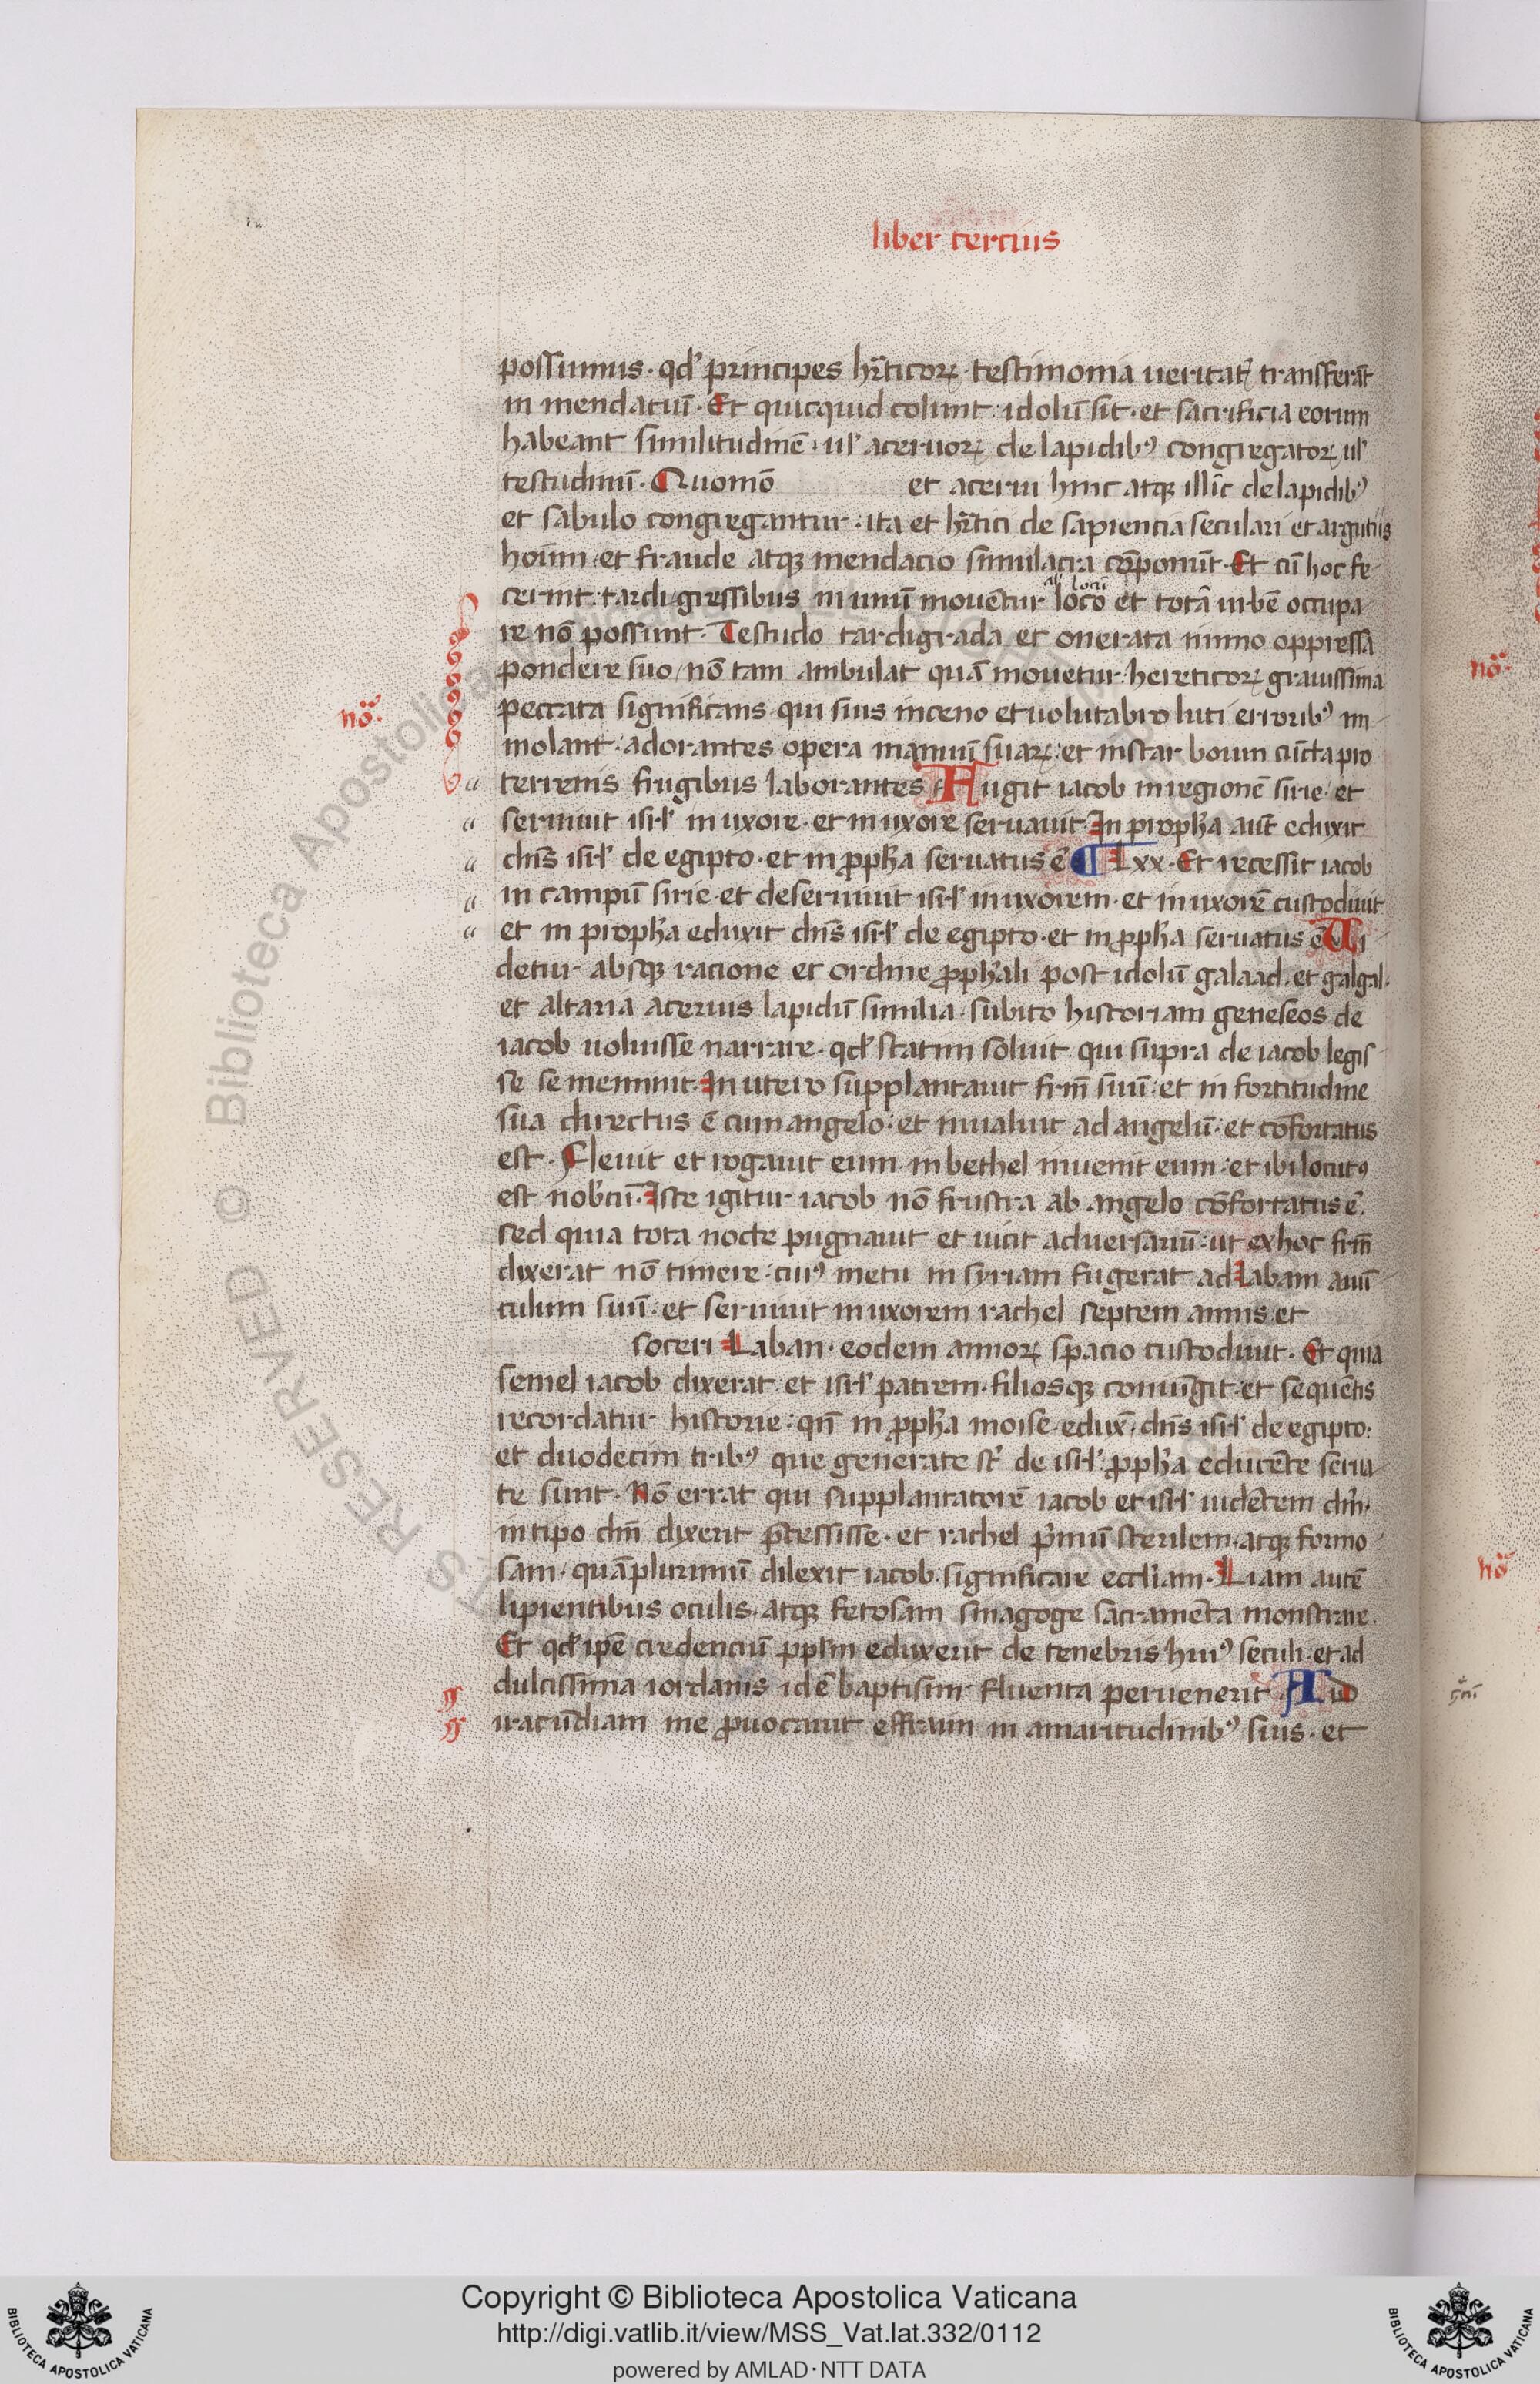 liber tercius
possumus · qd' principes hr̄ticoꝝ testimonia ueritatꝭ transferāt
in mendatiū · Et quicquid colunt : idolū sit · et sacrificia eorum
habeant similitudinē · ul' aceruoꝝ de lapidibꝰ congregatoꝝ ul'
testudinū · Quomō et acerui hinc atqꝫ illīc de lapidibꝰ
et sabulo congregantur : ita et hr̄tici de sapiencia seculari et argutiis
hoīm · et fraude atqꝫ mendacio simulacra cōponūt · Et cū hoc fe
al' locū
cerint : tardi gressibus in unū mouētur loco et totā urbē occupa
re nō possunt · Testudo tardigrada et onerata immo oppressa
pondere suo / nō tam ambulat quā mouetur : hereticoꝝ grauissima
nō
peccata significans · qui suis inceno et uolutabro luti erroribꝰ im
molant : adorantes opera manuū suaꝝ : et instar boum cūcta pro
a terrenis frugibus laborantes Fugit iacob in regionē sirie · et
a seruiuit isrl' in uxore · et in uxore seruauit In proph̄a aut̄ eduxit
a dn̄s isrl' de egipto · et in ꝓph̄a seruatus ē ¶ Lxx · Et recessit iacob
a in campū sirie · et deseruiuit isrl' in uxorem · et in uxorē custodiuit
a et in proph̄a eduxit dn̄s isrl' de egipto · et in ꝓph̄a seruatus ē Vi
detur absqꝫ racione et ordine ꝓph̄ali post idolū galaad · et galgal ·
et altaria aceruis lapidū similia · subito historiam geneseos de
iacob uoluisse narrare · qd' statim soluit qui supra de iacob legis
se se meminit · In utero supplantauit fr̄m suū : et in fortitudine
sua directus ē cum angelo : et inualuit ad angelū : et cōfortatus
est · Fleuit et rogauit eum · in bethel inuenit eum : et ibi locutꝰ
est nob'cū · Iste igitur iacob nō frustra ab angelo cōfortatus ē ·
sed quia tota nocte pugnauit et uicit aduersariū : ut ex hoc fr̄m
dixerat nō timere : cuiꝰ metu in syriam fugerat ad Labam auū
culum suū : et seruiuit in uxorem rachel septem annis et
soceri Laban · eodem annoꝝ spacio custodiuit · Et quia
semel iacob dixerat et isrl' patrem · filiosqꝫ coniūgit et sequētis
recordatur historie : qn̄ in ꝓph̄a moise · edux̄ · dn̄s isrl' de egipto :
et duodecim tribꝰ que generate st̄ de isrl' : ꝓph̄a educēte serua
te sunt · Nō errat qui supplantatorē iacob et isrl' uidētem dm̄ ·
in tipo dm̄ dixerit p̄cessisse · et rachel p'mū sterilem · atqꝫ formo
sam / quāplurimū dilexit iacob · significare eccl'iam · Liam autē
lipientibus oculis / atqꝫ fetosam sinagoge sacramēta monstrare ·
Et qd' ipē credenciū ppl'm eduxerit de tenebris huiꝰ seculi : et ad
dulcissima iordanis idē baptismi fluenta peruenerit Ad
iracūdiam me ꝓuocauit effraim in amaritudinibꝰ suis · et
© Biblioteca Apostolica Vaticana
RESERVED
Copyright © Biblioteca Apostolica Vaticana
http://digi.vatlib.it/view/MSS_Vat.lat.332/0112
powered by AMLAD·NTT DATA
BIBLIOTECA APOSTOLICA VATICANA
BIBLIOTECA APOSTOLICA VATICANA